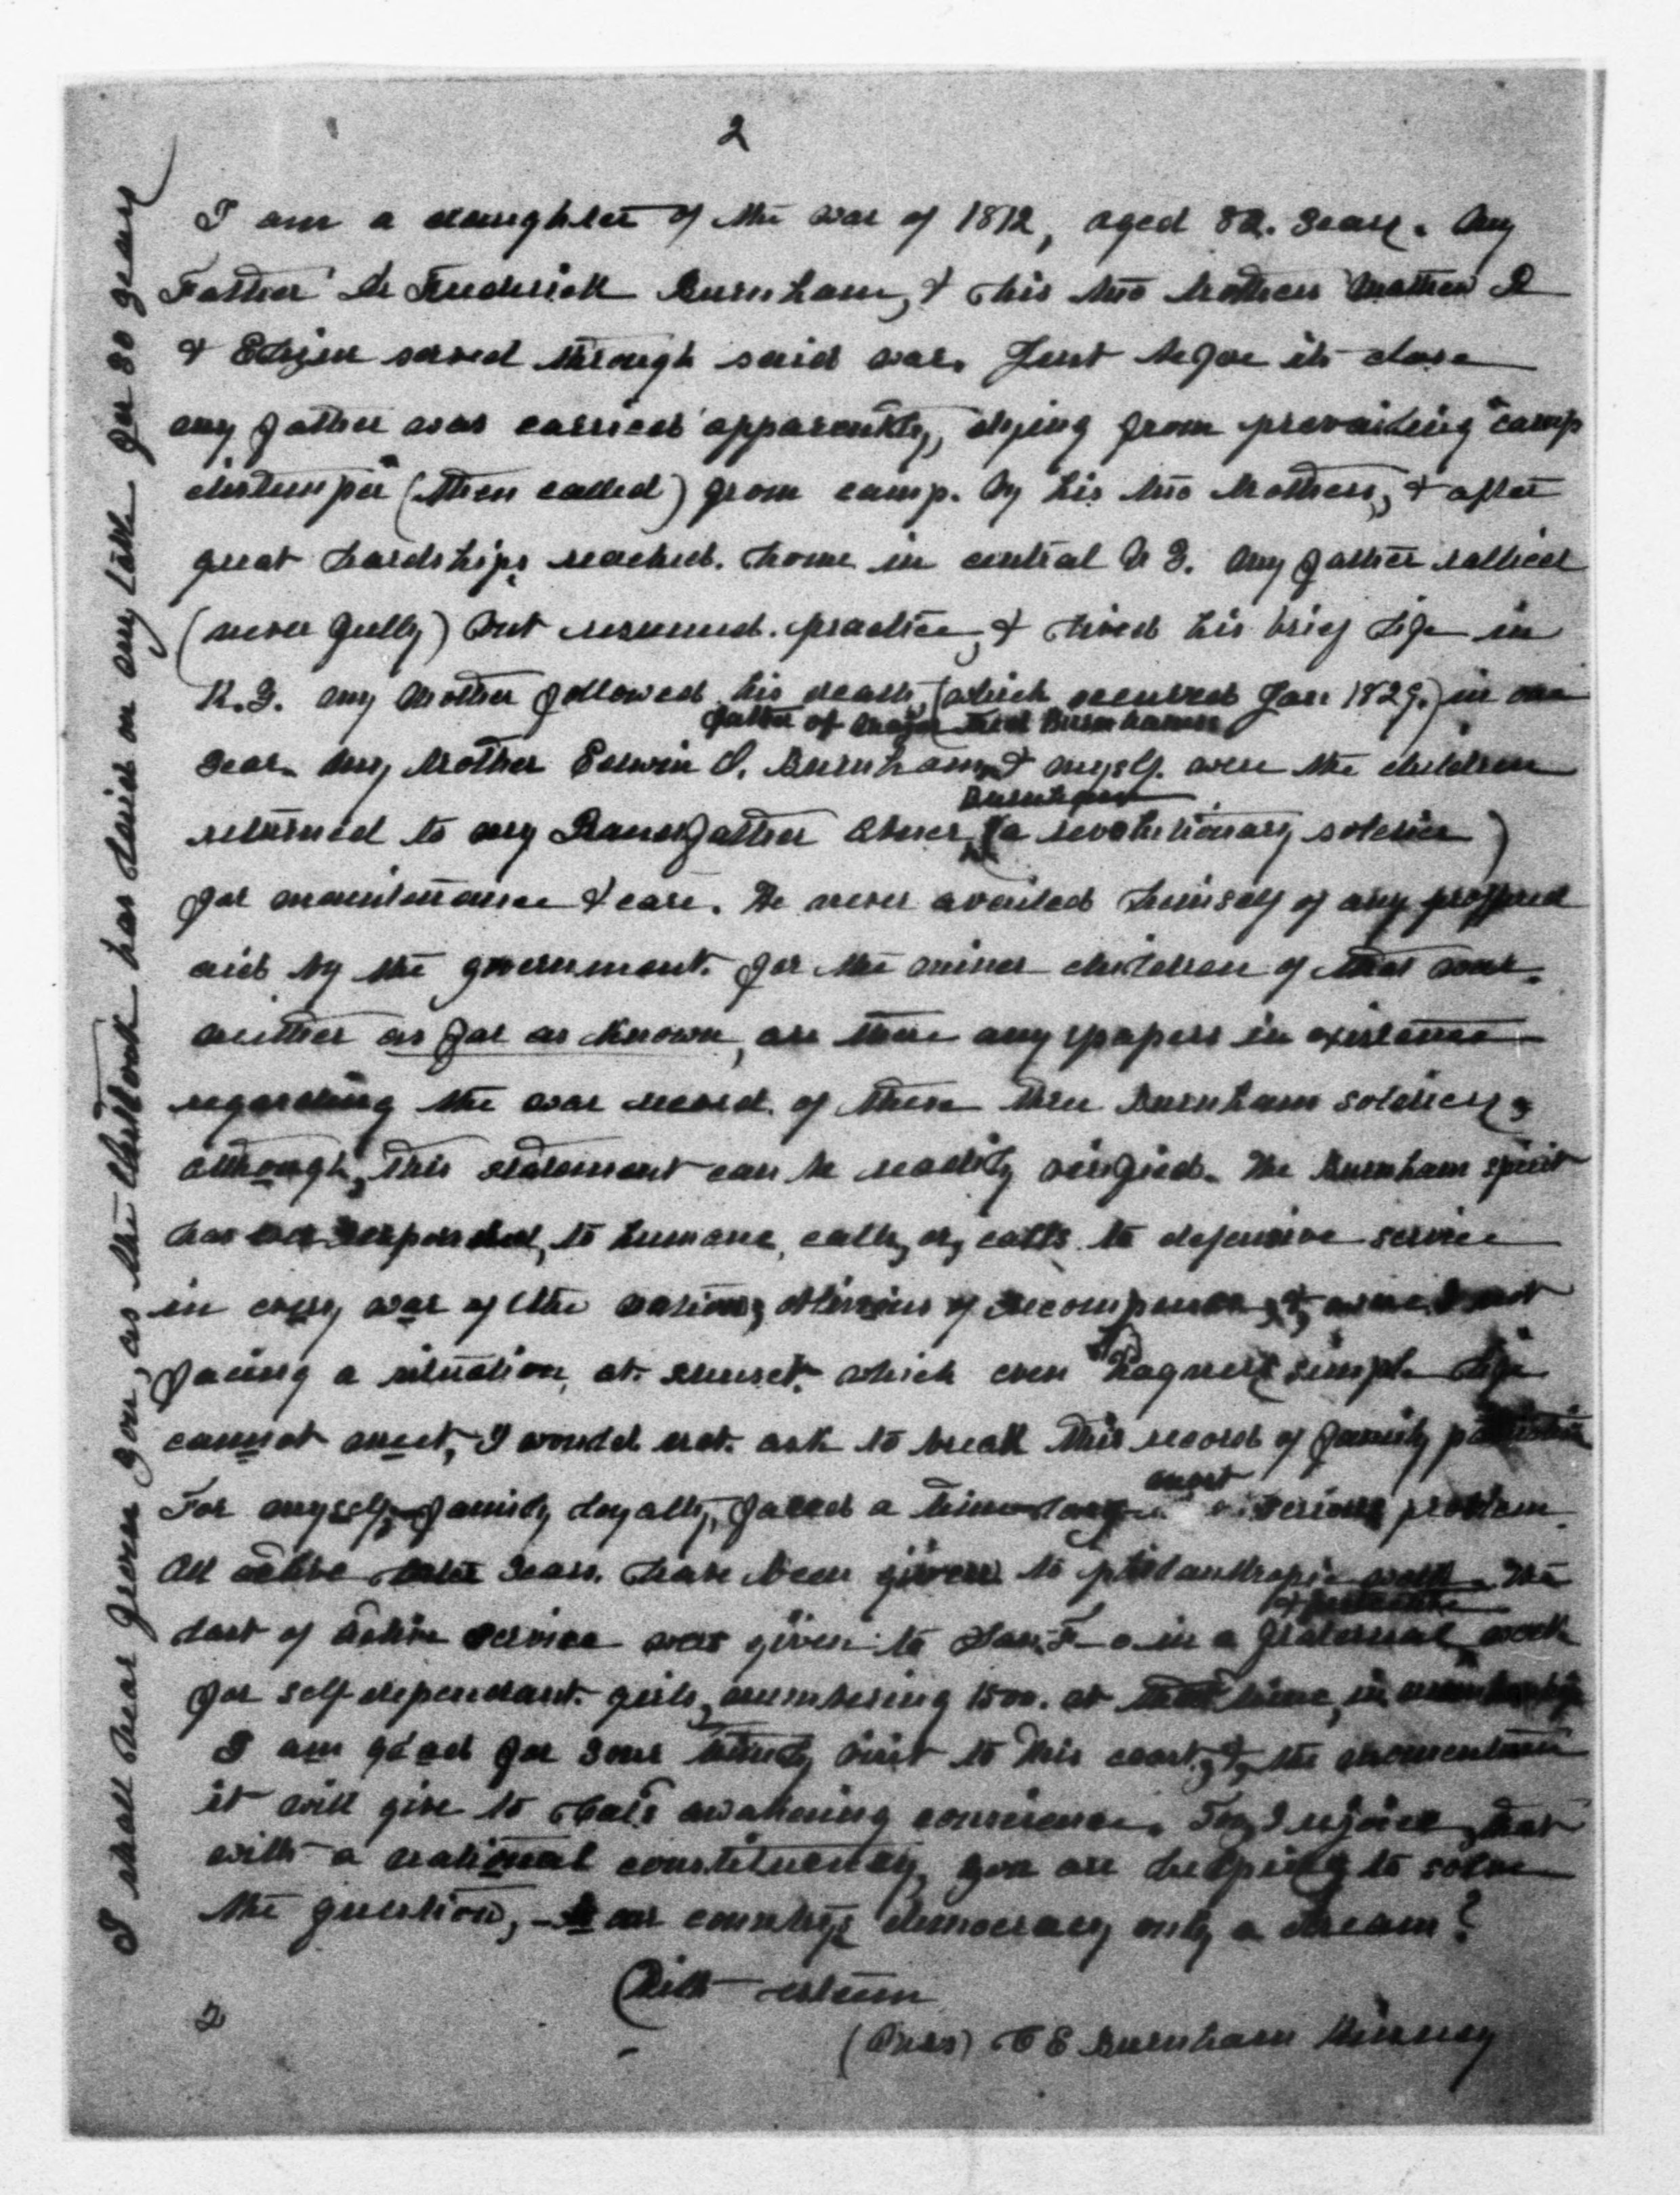 2
I am a daughter of the war of 1812, aged 82. years. My
Father Dr Frederick Burnham, & his two brothers Mathew D
& served through said war. Just before its close
my father was carried apparently, dying from prevailing camp
distemper (then called) from camp. by his two brothers, & after
great hardships reached. home in central N Y. My father rallied
(never fully) but resumed. practice, & lived his brief life in
N.Y. my mother followed his death, (which occurred Jan 1829.) in one
father of Major Fred Burnham
year. My brother Edwin O. Burnham, & myself. were the children
Burnham
returned to my Grandfather Abner, (a revolutionary soldier)
for maintenance & care. He never availed himself of any proffered
aid by the government. for the minor children of that war.
neither as far as known, are there any papers in existence
regarding the war record. of these three Burnham soldiers,
although, this statement can be readily verified. The Burnham spirit
has responded, to humane, calls, or, calls. to defensive service
in every war of the nation, oblivious of recompense, & were I not
facing a situation, at. sunset. which even Wagner's simple life
cannot meet, I would not. ask to break this record of family
For myself, family loyalty, faced a most serious problem.
All active years. have been given to philanthropic work. The
last of active service was given to San. F—o in a fraternal work
& protective
for self dependant. girls, numbering 1500. at that time, in membership
I am glad for your timely visit to this coast, & the momentum
it will give to Cal's awakening conscience. Too, I rejoice, that
with a national constituency, you are helping to solve
the question, – Is our country's democracy only a dream?
With esteem
(Mrs) C E Burnham Kinney
2
I shall hear from you, as the outlook has laid on my table for 30 years